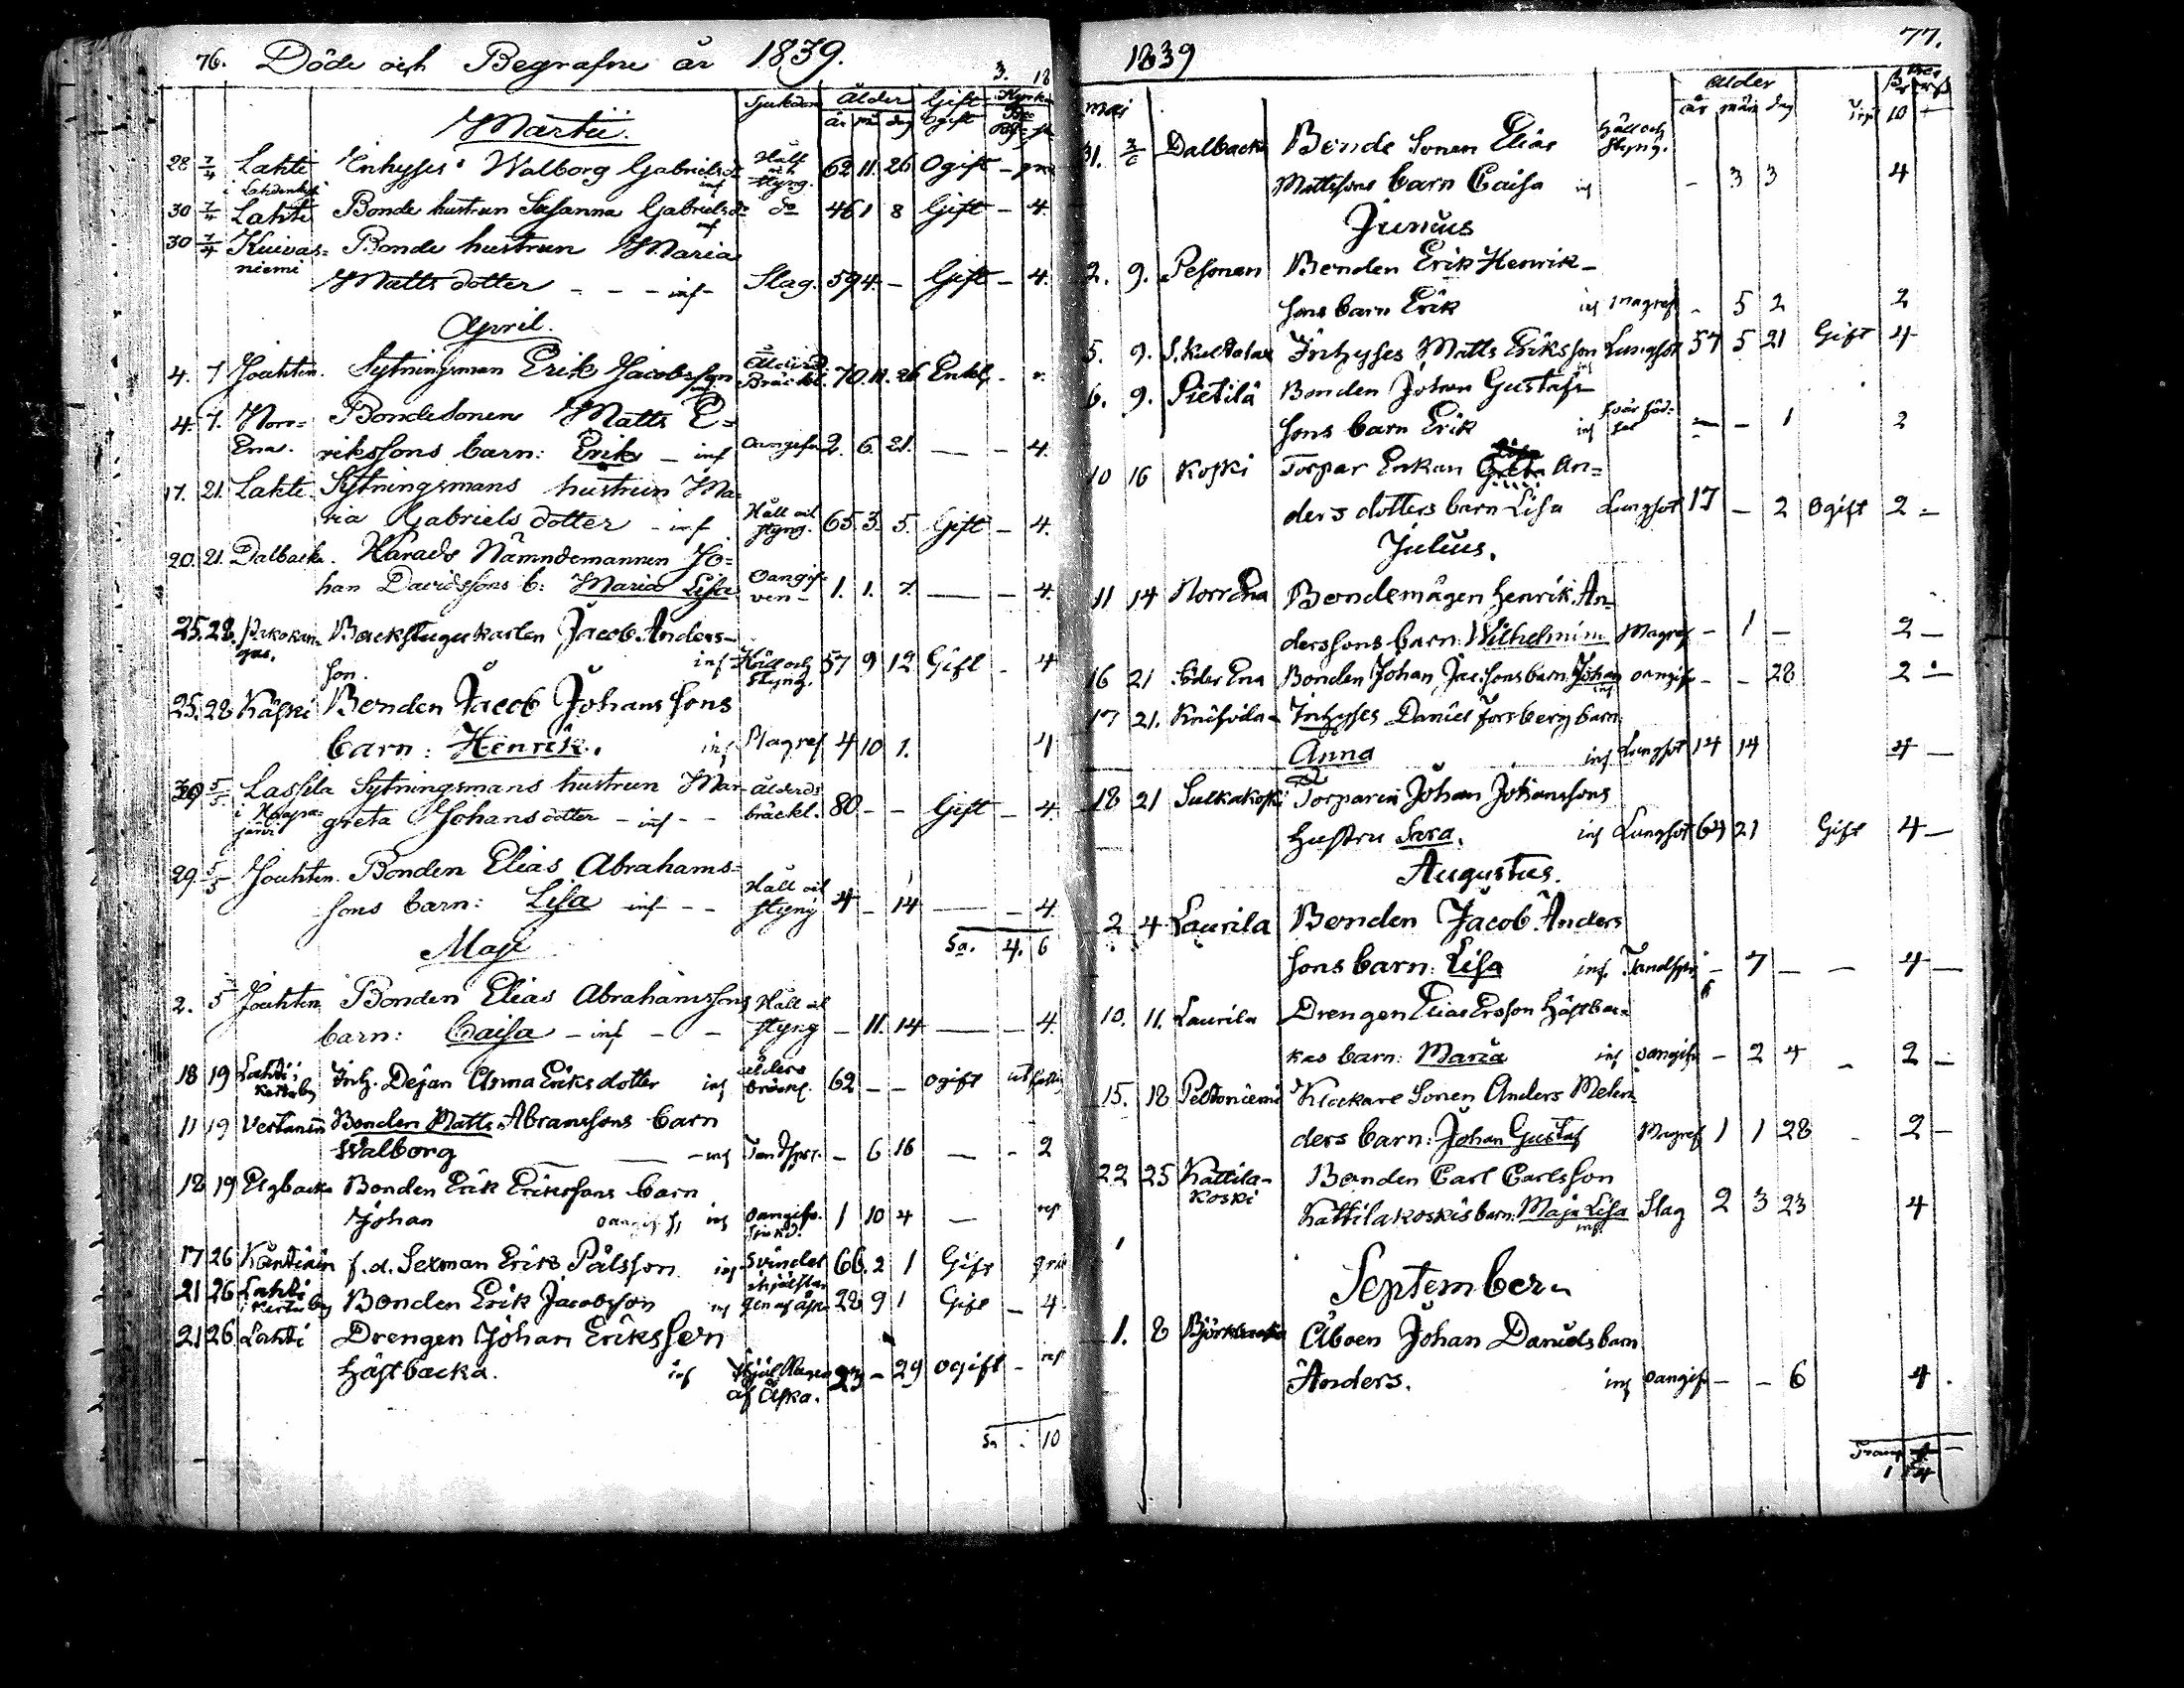 76. Döde och Begrafne år 1839.
Sjukdom Ålder Gift Kyrkan
år mån dag Ogift
Martii.
28 7/4 Lahti Inhyses Walborg Gabrielsdr Håll och 62 11. 26 Ogift -
i Lahdenkyl inf styng.
30 7/4 Lahti Bonde hustrun Susanna Gabrielsdr do 46 1 8 Gift - 4.
inf
30 7/4 Kuivas= Bonde hustrun Maria
niemi Matts dotter - - - inf - Slag. 59 4. - Gift - 4.
April.
4. 7 Jouhten. Sytningsman Erik Jacobsson Ålderd. Bräckl. 70. 11. 26 Enkl. -
4. 7. Norr= Bondesonen Matts E=
Ena. rikssons barn: Erik - inf oangifven 2. 6. 21. — - 4.
17. 21. Lahti Sytningsmans hustrun Ma=
ria Gabriels dotter - inf Håll och styng. 65. 3. 5. Gift - 4.
20. 21. Dalbacka. Härads Nämndemannen Jo=
han Davidssons b: Maria Lisa oangif= ven - 1. 1. 7. — - 4.
25. 28. Backstugukarlen Jacob Anders-
gas. son. inf Håll och styng. 57 9 12 Gift - 4
25. 28 Käski Bonden Jacob Johanssons
barn: Henrik. inf Magref 4 10 1. 4
5/5. Lassila Sytningsmans hustrun Mar- ålderds
i Haapa= järvi greta Johansdotter - inf - - bräckl. 80. - - Gift - 4.
29. 5/5 Jouhten. Bonden Elias Abrahams=
sons barn: Lisa inf - - Håll och styng 4 - 14 — - 4.
Sa. 4. 6
Maji
2. 5 Jouhten Bonden Elias Abrahamssons Håll och
barn: Caisa - inf - - styng - 11. 14 — - 4.
18 19 Lahti i Inh. Dejan Anna Eriksdotter inf ålders bräckl. 62 - - ogift
11 19 Vertanen Bonden Matts Abramssons barn
Walborg — — - inf Tandspr. - 6 16 — - 2
18 19 Elgbacka Bonden Erik Erikssons barn
Johan inf oangifv. sjukd. 1 10 4 —
17 26 Käntiäin f.d. Sexman Erik Pålsson inf svindel 66. 2 1 Gift
21 26 Lahti Bonden Erik Jacobsson inf ihjälslagen af åska 28 9 1 Gift - 4
21 26 Lahti Drengen Johan Eriksson
Hästbacka. inf ihjälslagen 23 - 29 ogift -
af Åska.
Sa . 10
77.
1839
Ålder
Maj år mån dag 10 -
31. Dalbacka Bonde Sonen Elias Håll och styng.
Mattssons barn Caisa inf - 3 3 4
Junius
2. 9. Pesonen Bonden Erik Henrik-
sons barn Erik inf magref - 5 2 2
5. 9. Inhyses Matts Eriksson Lungsot 57 5 21 Gift 4
6. 9. Pietilä Bonden Johan Gustafs
sons barn Erik inf svår föd= sel — - 1 2
Lisa
10 16 Koski Torpar Enkan Greta An=
ders dotters barn Lisa Lungsot 17 - 2 Ogift 2 -
Julius.
11 14 Norr Ena Bondemågen Henrik An-
derssons barn: Wilhelmina Magref - 1 - 2 -
16 21 Söder Ena Bonden Johan Jac:sons barn Johan oangifv - - 28 2 -
inf
17 21. Inhyses Daniel Forsberg barn
Anna inf Lungsot 14 14 4 -
18 21 Sulkakoski Torparen Johan Johanssons
hustru Sara. inf Lungsot 64 21 Gift 4 -
Augustus.
2 4 Laurila Bonden Jacob Anders
sons barn: Lisa inf. Tandspr - 7 - - 4 -
10. 11. Laurila Drengen Elias Ersson Hästbac=
kas barn: Maria inf oangifv - 2 4 - 2 -
15. 18 Peltoniemi Klockare Sonen Anders Melen=
ders barn: Johan Gustaf Magref 1 1 28 - 2 -
22 25 Kattila- Bonden Carl Carlsson
koski Kattilakoskis barn: Maja Lisa Slag 2 3 23 4
inf
September
1. 8 Björkbacka Åboen Johan Daniels barn
Anders. inf oangifv - - 6 4.
Transp